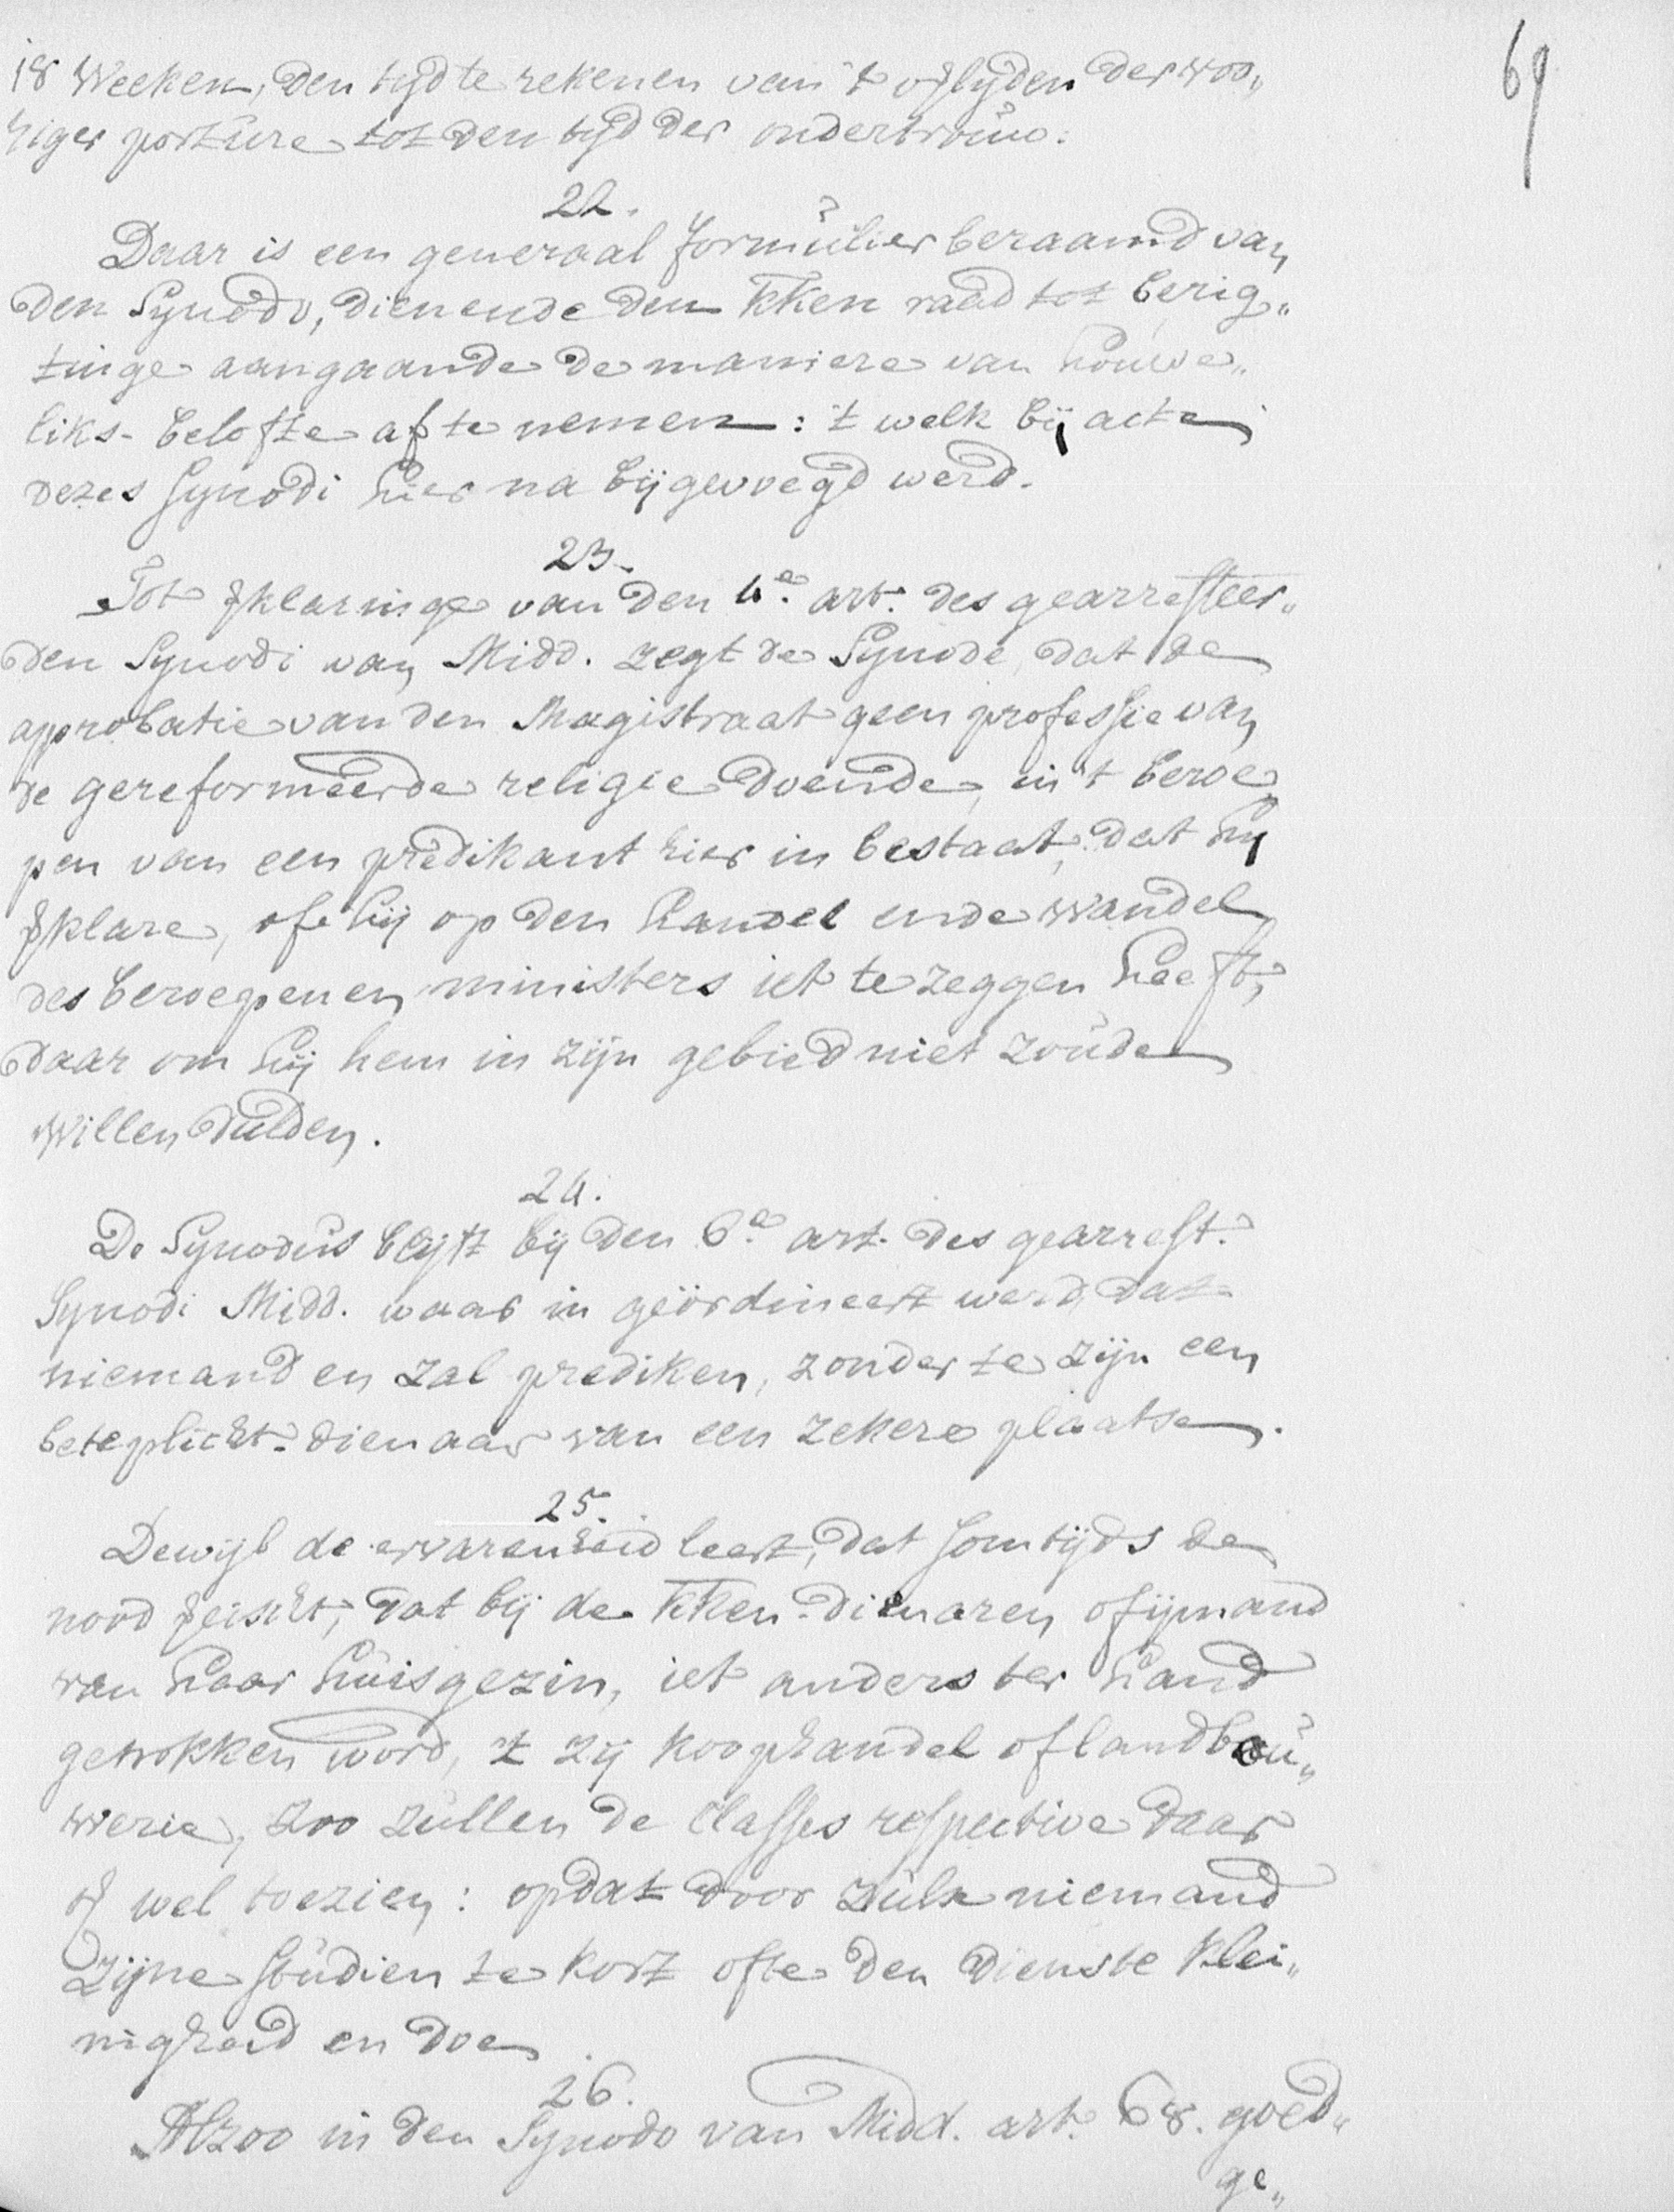 69
18 Weeken, den tyd te rekenen van 't oflyden der voo„
riger porture tot den tyd der ondertrouw.
22.
Daar is een generaal formulier beraamd van
den Synodo, dienende den kken raad tot berig„
tinge aangaande de maniere van houwe„
liks-belofte af te nemen: 't welk bij acte
dezes Synodi hier na bijgevoegd werd.
23.
Tot vklaringe van den 4e. art. des gearresteer„
den Synodi van Midd. zegt de Synode, dat de
approbatie van den Magistraat geen professie van
de gereformeerde religie doende, in 't beroe„
pen van een predikant hier in bestaat, dat hij
vklare, of hij op den handel ende wandel
des beroepenen ministers iet te zeggen heeft,
daar om hij hem in zijn gebied niet zoude
willen dulden.
24.
De Synodus blijft bij den 6e. art. des gearrest.
Synodi Midd. waar in geördineert werd, dat
niemand en zal prediken, zonder te zijn een
beteplicht dienaar van een zekere plaatse.
25.
Dewijl de ervarenheid leert, dat somtijds de
nood veischt, dat bij de kken-dienaren of ijmand
van haar huisgezin, iet anders ter hand
getrokken word, 't zij koophandel of landbou„
werie, zoo zullen de Classes respective daar
of wel toezien: opdat door zulx niemand
zijne studien te kort ofte den dienste klei„
nigheid en doe.
26.
Alzoo in den Synodo van Midd. art. 68. goed„
ge„